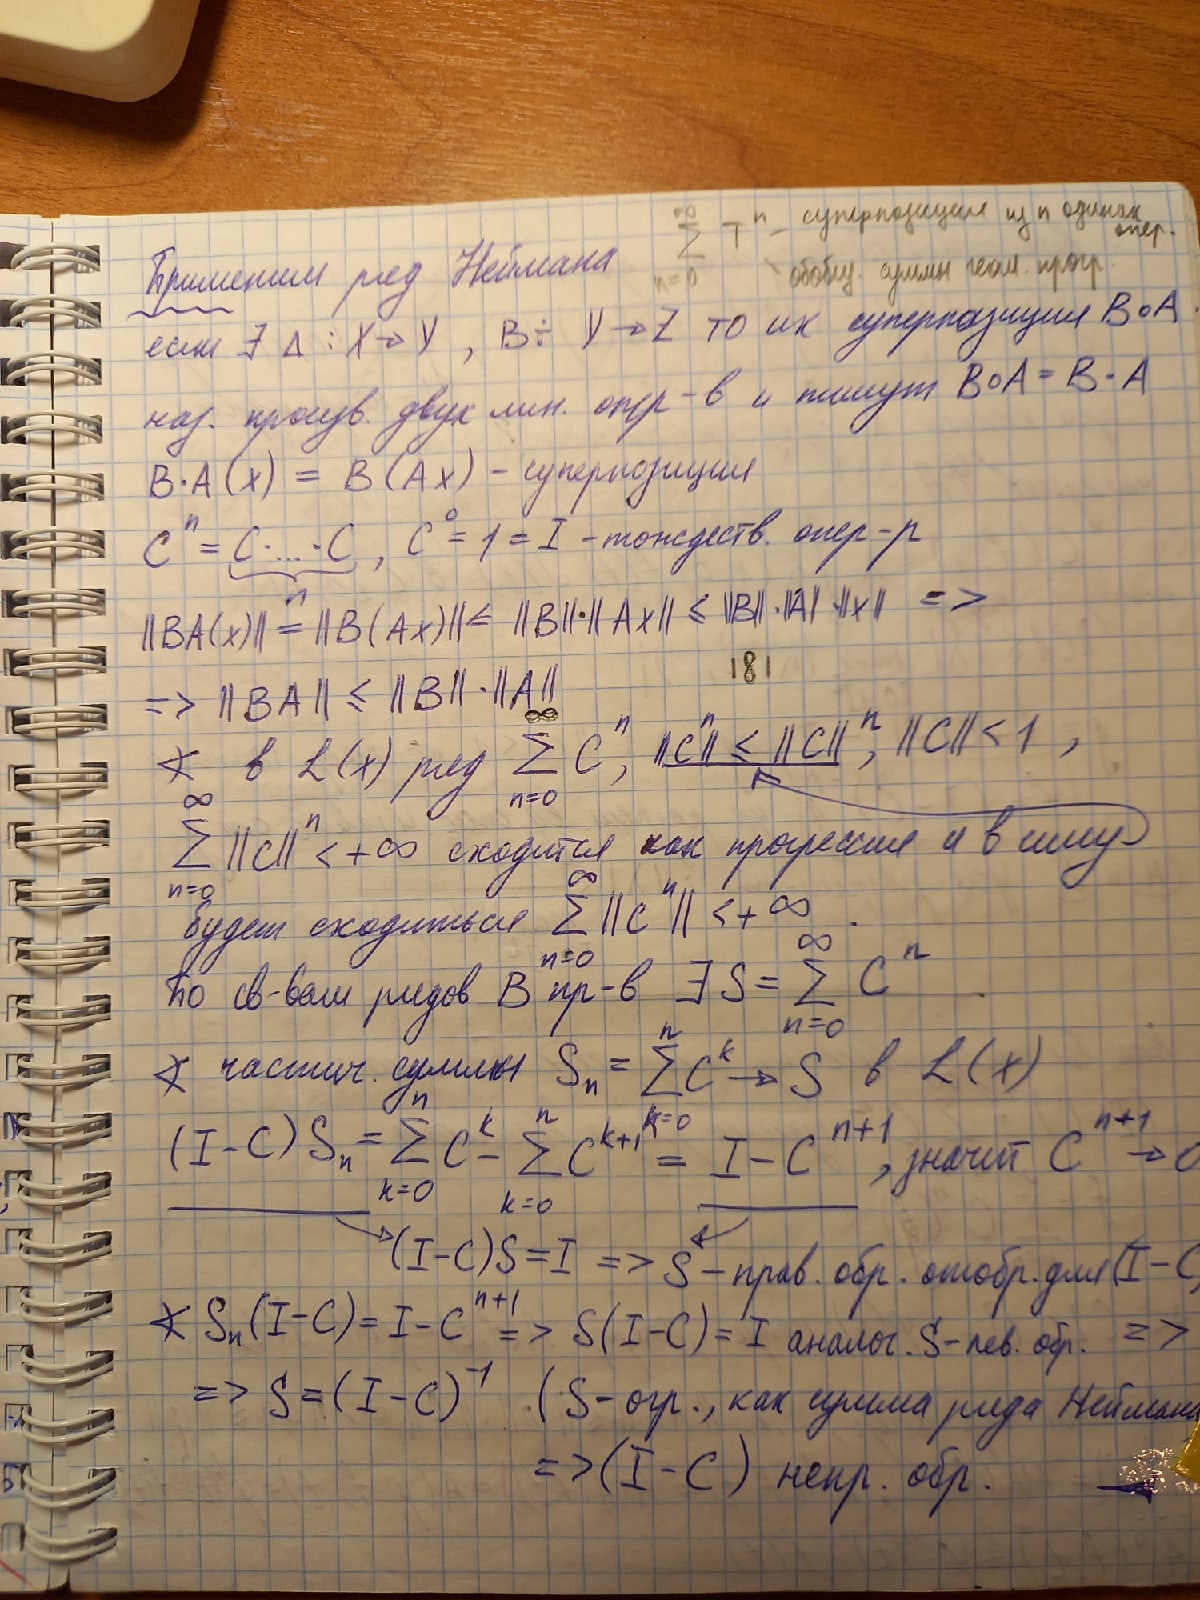 ∞
∑ Tⁿ - суперпозиция из n одинак
n=0 опер.
обобщ. суммы геом. прогр.
Применим ряд Неймана
если ∃ A : X→Y , B÷ Y→Z то их суперпозиция B∘A
наз. произв. двух лин. опер-в и пишут B∘A = B·A
B·A(x) = B(Ax) - суперпозиция
Cⁿ = C·...·C , C⁰ = 1 = I - тождеств. опер-р
n
||BA(x)|| = ||B(Ax)|| ≤ ||B||·||Ax|| ≤ ||B||·||A||·||x|| =>
181
=> ||BA|| ≤ ||B||·||A||
∞
∢ в L(x) ряд ∑ Cⁿ, ||Cⁿ|| ≤ ||C||ⁿ, ||C|| < 1 ,
n=0
∞
∑ ||C||ⁿ < +∞ сходится как прогрессия и в силу
n=0
∞
будет сходиться ∑ ||Cⁿ|| < +∞ .
n=0
∞
по св-вам рядов B пр-в ∃ S = ∑ Cⁿ
n=0
n
∢ частич. суммы Sₙ = ∑ Cᵏ → S в L(x)
k=0
n n
(I-C) Sₙ = ∑ Cᵏ - ∑ Cᵏ⁺¹ = I - Cⁿ⁺¹ , значит Cⁿ⁺¹ → 0
k=0 k=0
(I-C)S = I => S - прав. обр. отобр. для (I-C
∢ Sₙ(I-C) = I - Cⁿ⁺¹ => S(I-C) = I аналог. S - лев. обр. =>
=> S = (I-C)⁻¹ (S - огр., как сумма ряда Неймана
=> (I-C) непр. обр.